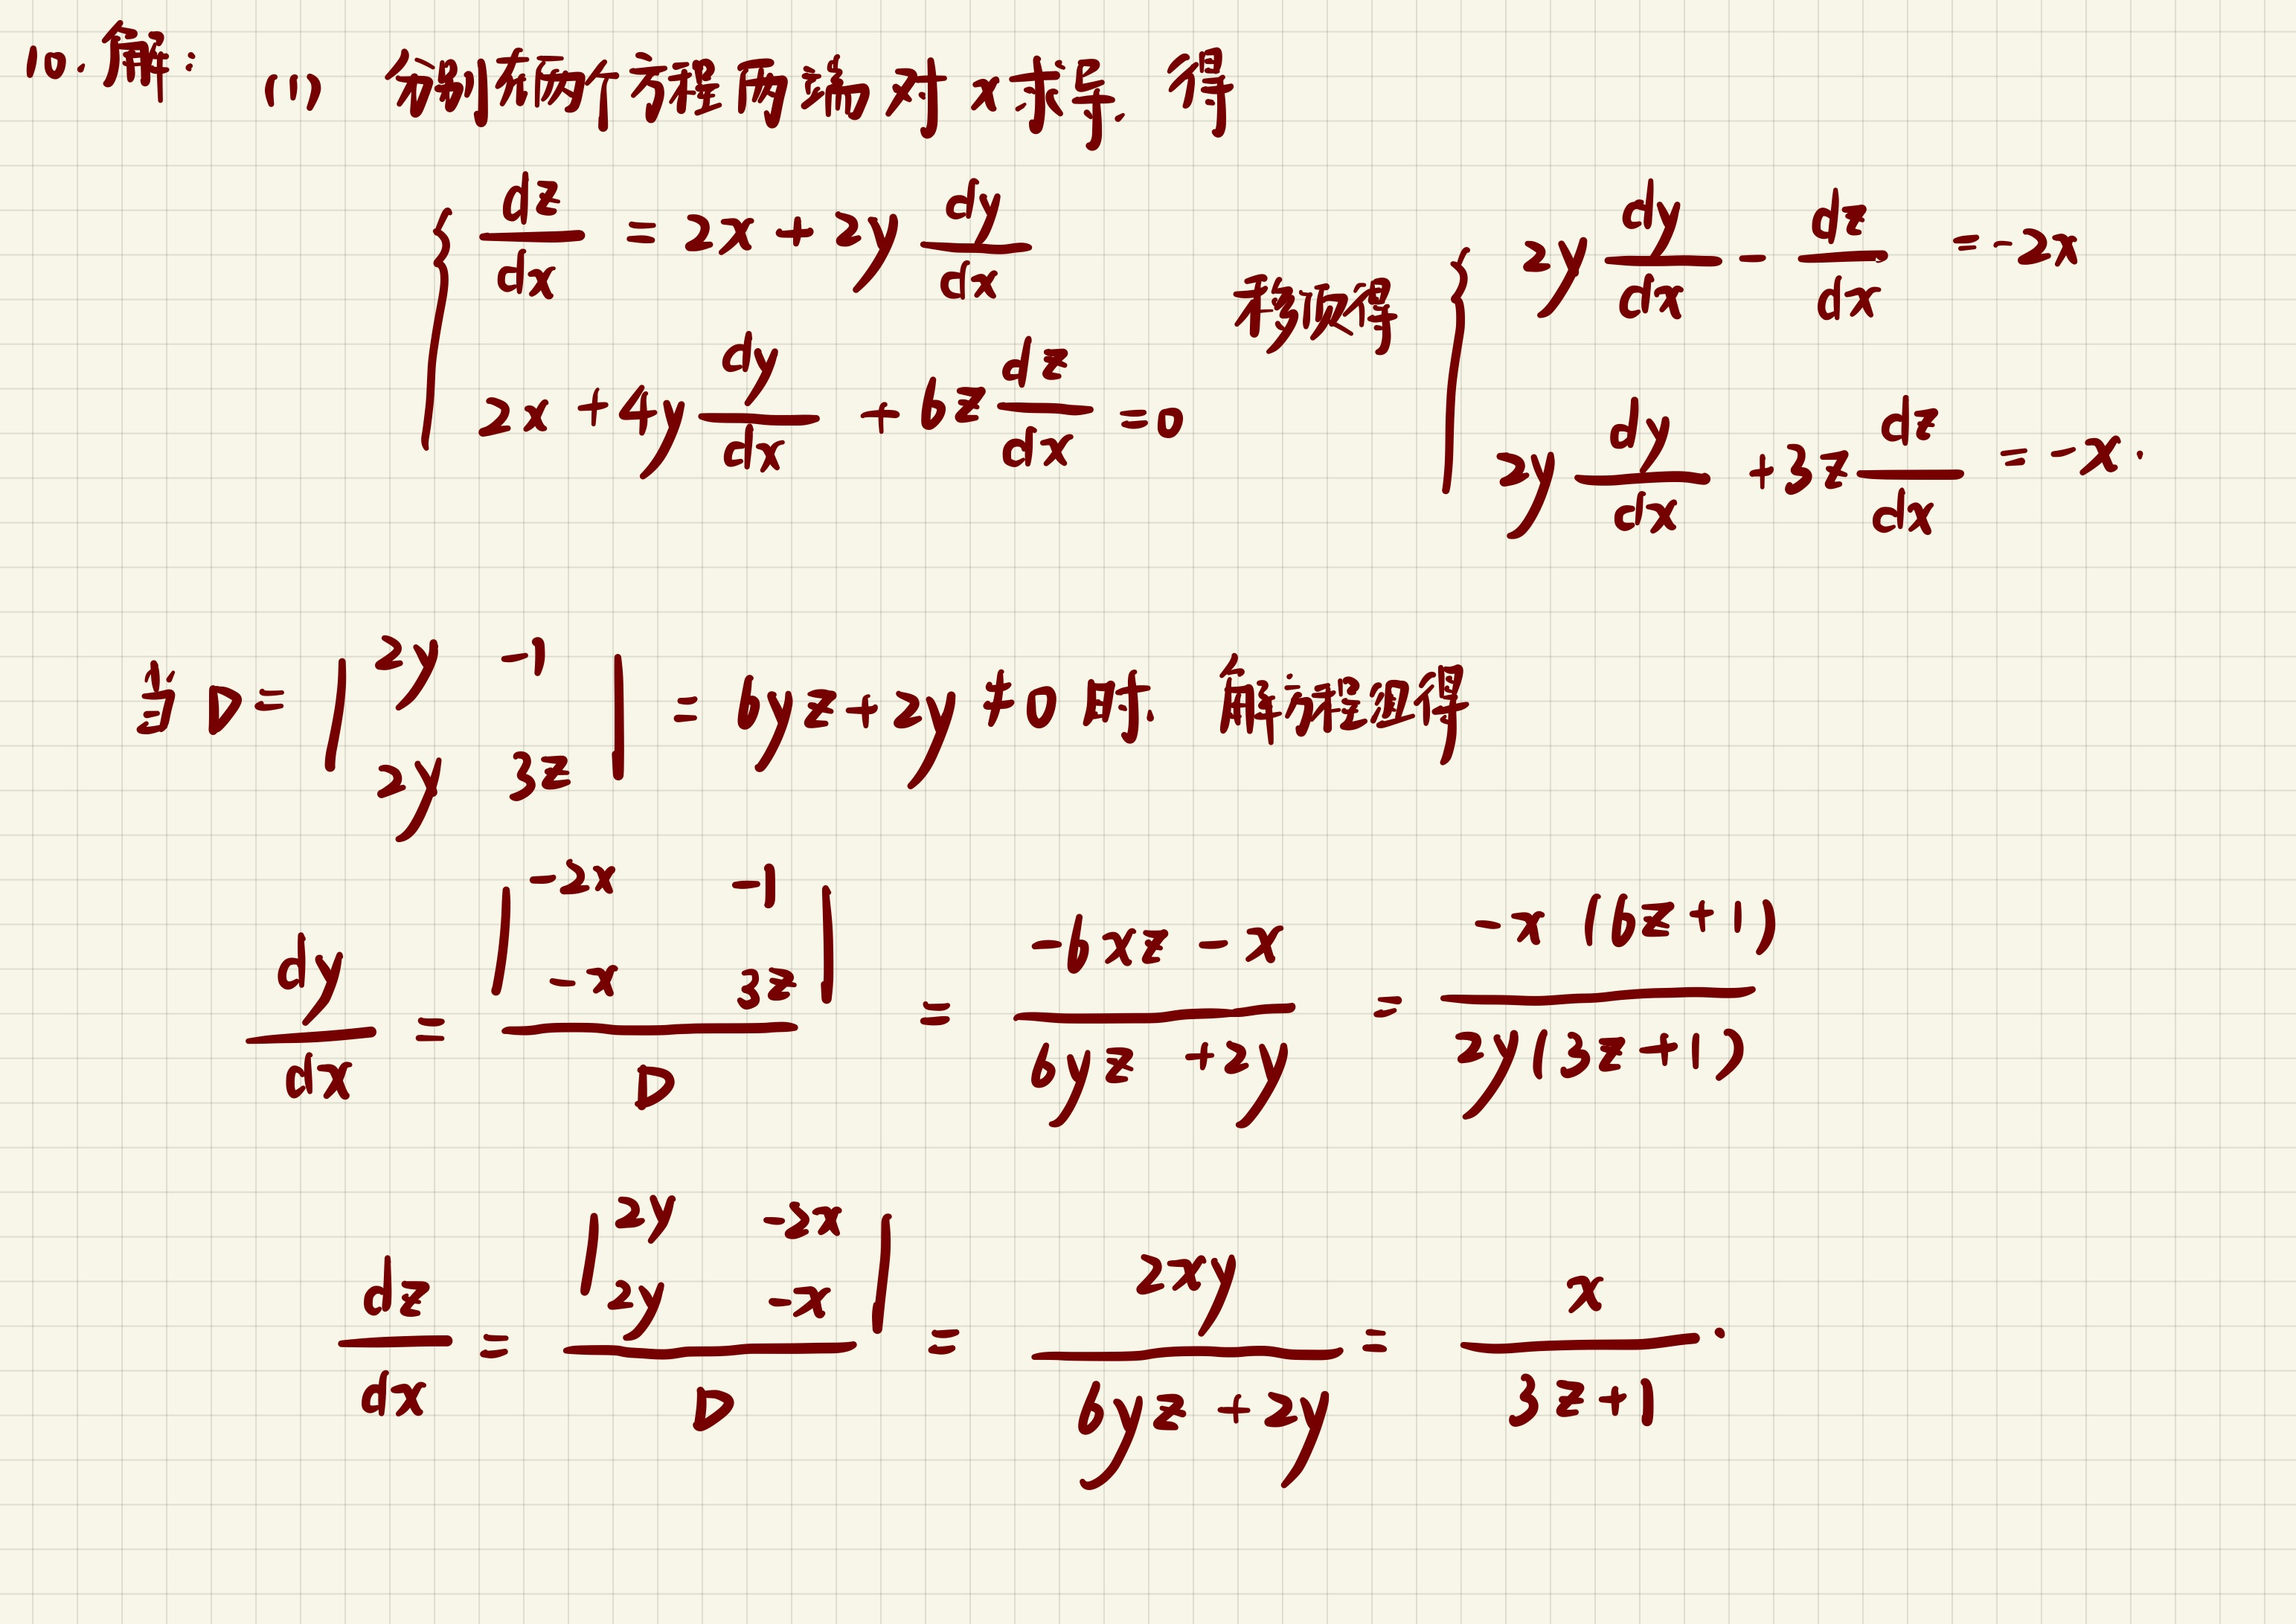 10. 解: (1) 分别在两个方程两端对x求导, 得
{ dz/dx = 2x + 2y dy/dx
2x + 4y dy/dx + 6z dz/dx = 0
移项得 { 2y dy/dx - dz/dx = -2x
2y dy/dx + 3z dz/dx = -x.
当 D = | 2y -1 ; 2y 3z | = 6yz + 2y ≠ 0 时, 解方程组得
dy/dx = | -2x -1 ; -x 3z | / D = (-6xz - x)/(6yz + 2y) = -x(6z+1)/(2y(3z+1))
dz/dx = | 2y -2x ; 2y -x | / D = 2xy/(6yz + 2y) = x/(3z+1).